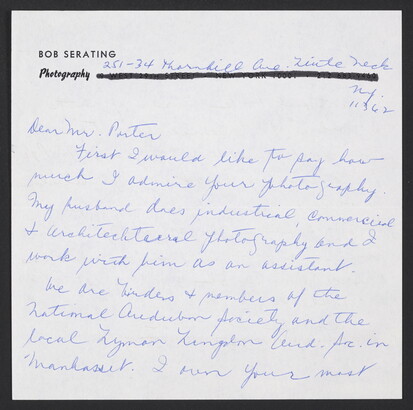 BOB SERATING
251-34 Thornhill Ave. Little Neck
Photography
N.Y.
11362
Dear Mr. Porter
First I would like to say how
much I admire your photography.
My husband does industrial, commercial
& architechtural photography and I
work with him as an assistant.
We are birders & members of the
National Audubon Society and the
local Lyman Langdon Aud. Soc. in
Manhasset. I own your most